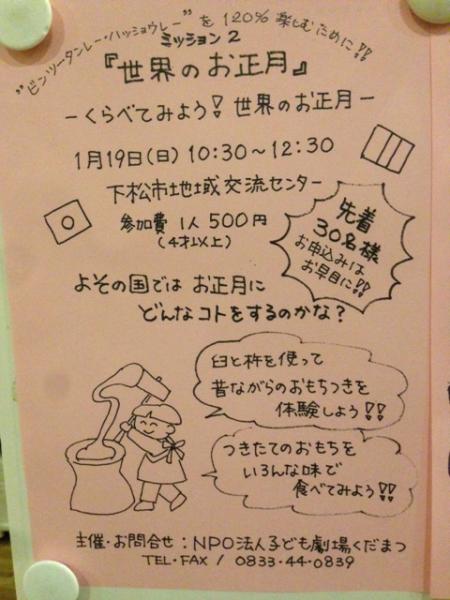 “ビンツータンレー・ハッショウレー”を120%楽しむために!!
ミッション2
『世界のお正月』
-くらべてみよう! 世界のお正月-
1月19日(日) 10:30~12:30
下松市地域交流センター
参加費 1人 500円
(4才以上)
先着
30名様
お申込みは
お早目に!!
よその国では お正月に
どんなコトをするのかな?
臼と杵を使って
昔ながらのおもちつきを
体験しよう!!
つきたてのおもちを
いろんな味で
食べてみよう!!
主催・お問合せ:NPO法人子ども劇場くだまつ
TEL・FAX / 0833-44-0839